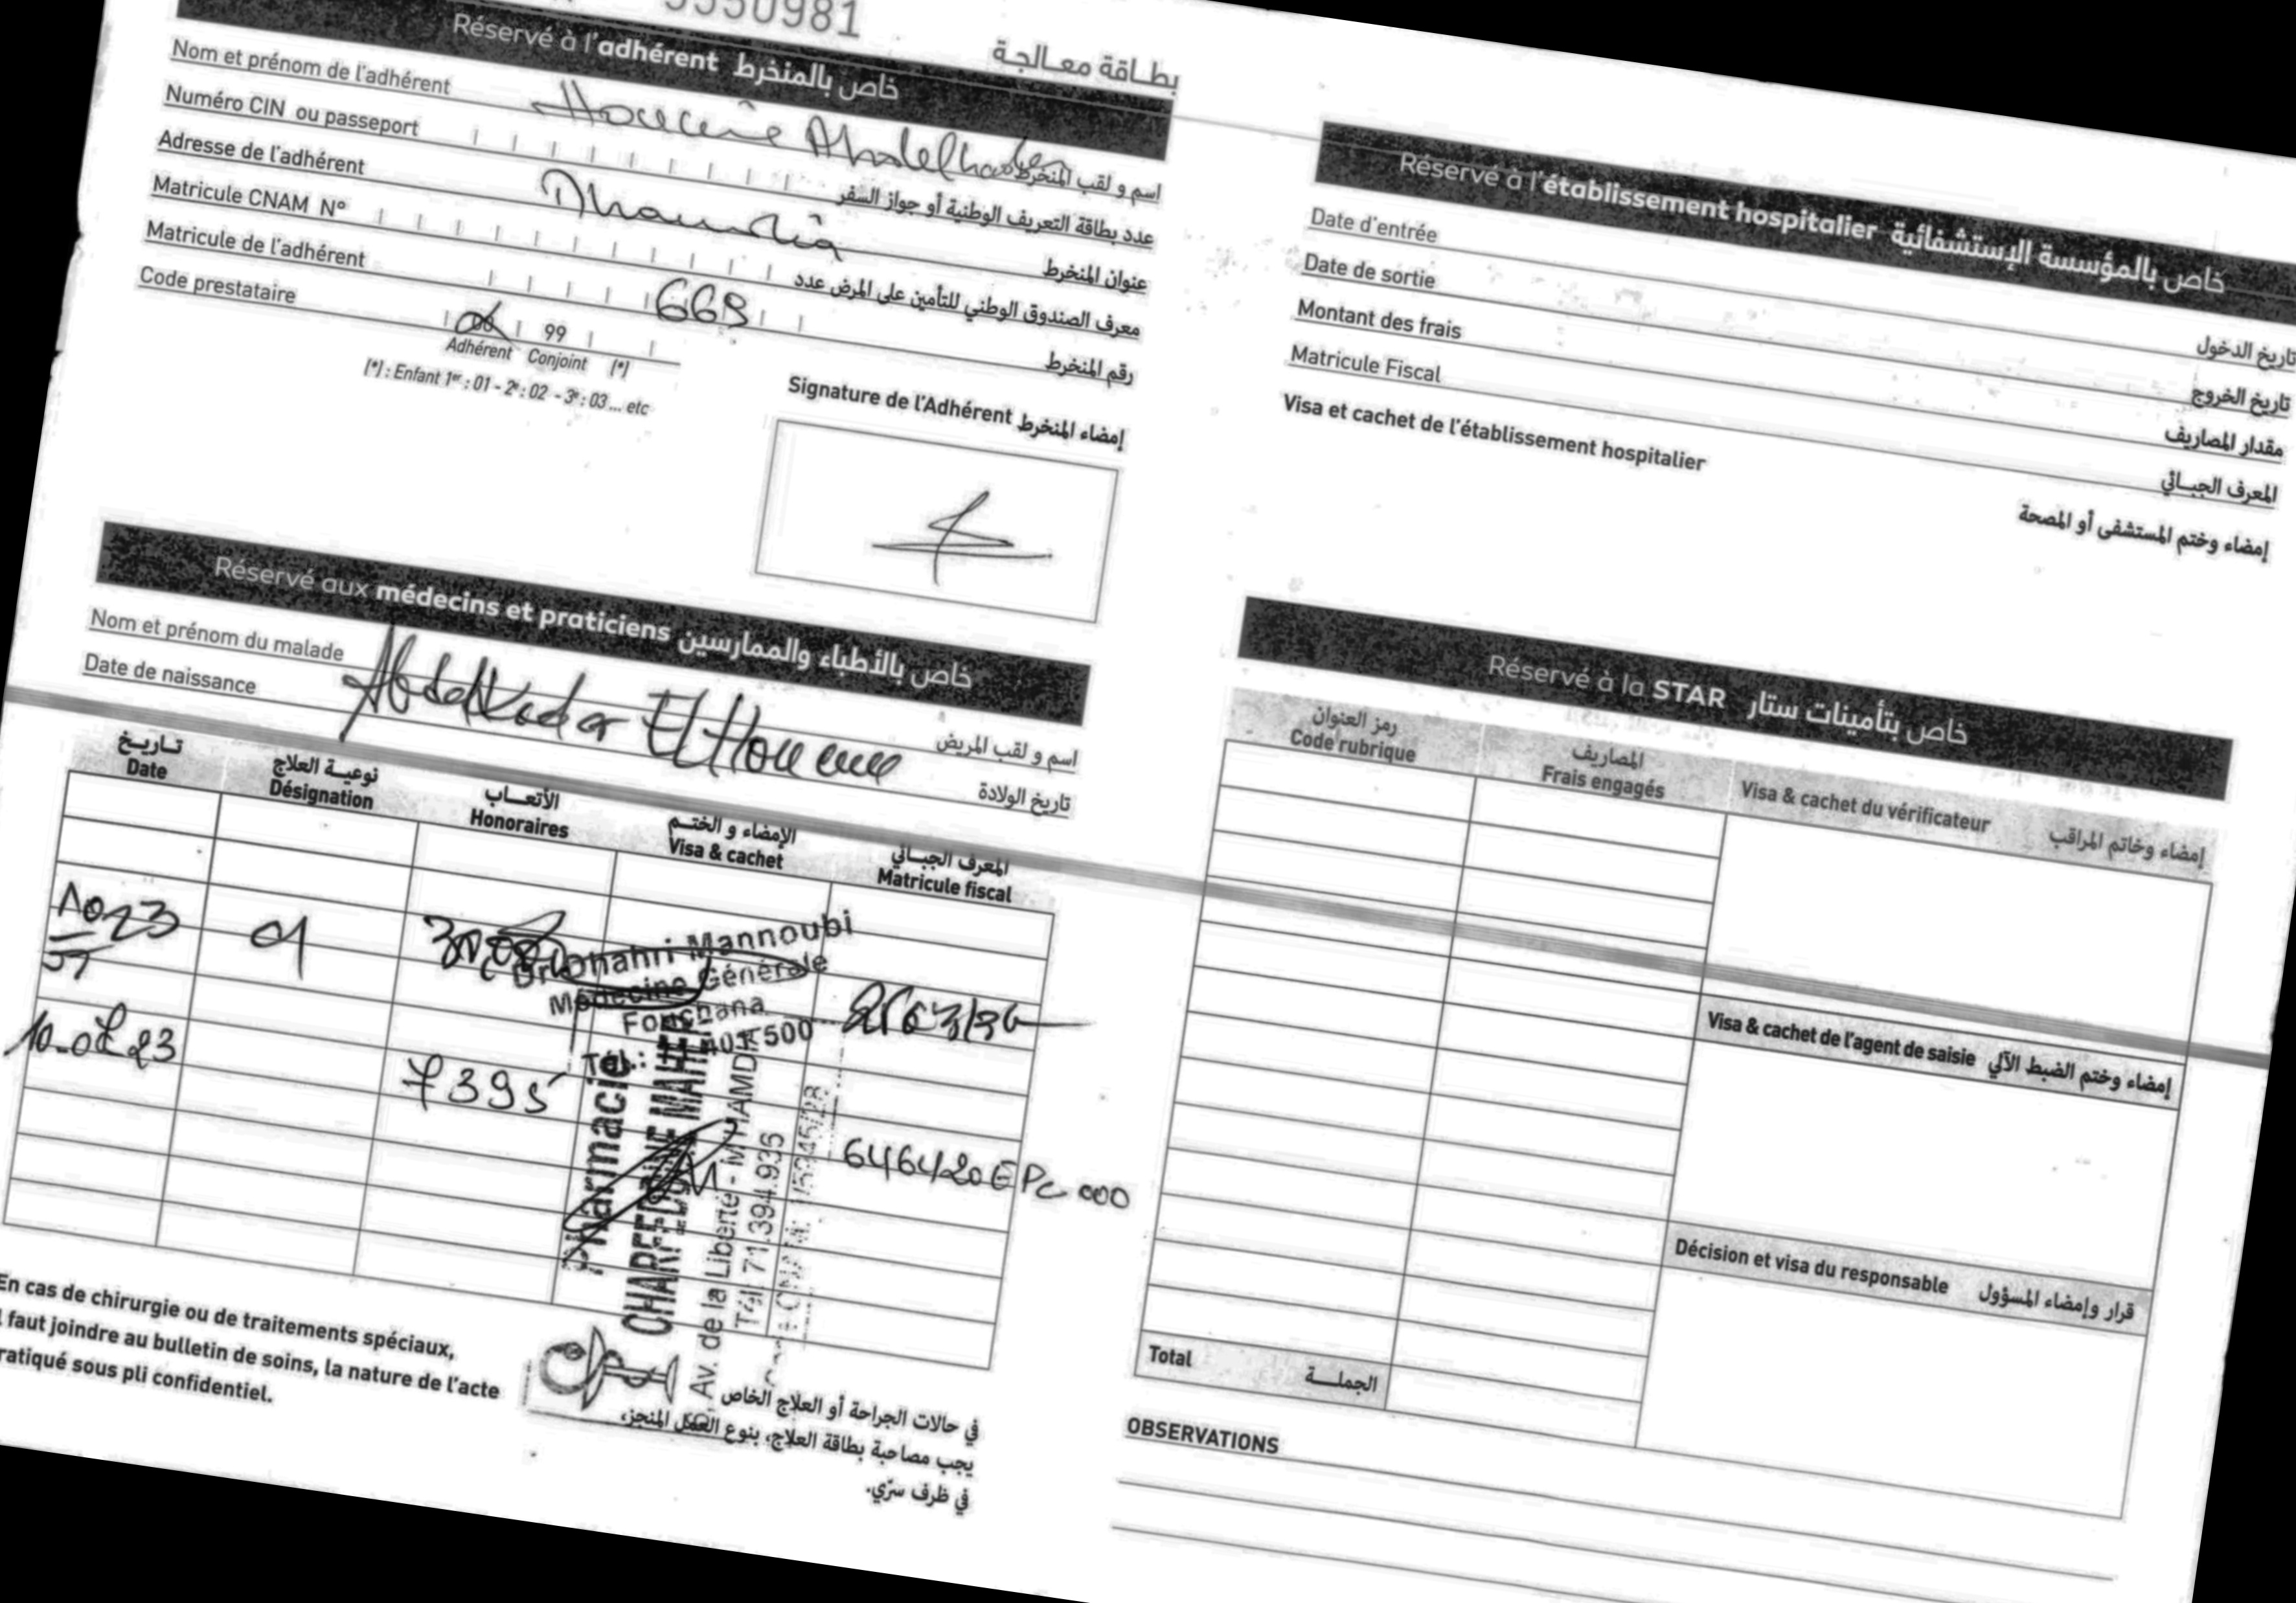 بطـاقة معـالجـة
Réservé à l'adhérent خاص بالمنخرط
Nom et prénom de l'adhérent اسم و لقب المنخرط
Numéro CIN ou passeport عدد بطاقة التعريف الوطنية أو جواز السفر
Adresse de l'adhérent عنوان المنخرط
Matricule CNAM N° معرف الصندوق الوطني للتأمين على المرض عدد
Matricule de l'adhérent 663 رقم المنخرط
Code prestataire 00 99
Adhérent Conjoint (*)
(*) : Enfant 1er : 01 - 2e : 02 - 3e : 03 ... etc
Signature de l'Adhérent إمضاء المنخرط
Réservé aux médecins et praticiens خاص بالأطباء والممارسين
Nom et prénom du malade Abdelkader El Houcine اسم و لقب المريض
Date de naissance تاريخ الولادة
تـاريـخ نوعيـة العلاج الأتعـاب الإمضاء و الختـم المعرف الجبـائي
Date Désignation Honoraires Visa & cachet Matricule fiscal
Mannoubi
Médecine Générale
Fouchana
Tél.:
7395
646420 E PC 000
Pharmacie
CHARFEDDINE MAHER
Av. de la Liberté - M'HAMDIA
Tél 71.394.936
En cas de chirurgie ou de traitements spéciaux,
faut joindre au bulletin de soins, la nature de l'acte
ratiqué sous pli confidentiel.
في حالات الجراحة أو العلاج الخاص
يجب مصاحبة بطاقة العلاج، بنوع العمل المنجز،
في ظرف سرّي.
Réservé à l'établissement hospitalier خاص بالمؤسسة الإستشفائية
Date d'entrée تاريخ الدخول
Date de sortie تاريخ الخروج
Montant des frais مقدار المصاريف
Matricule Fiscal المعرف الجبـائي
Visa et cachet de l'établissement hospitalier إمضاء وختم المستشفى أو المصحة
Réservé à la STAR خاص بتأمينات ستار
رمز العنوان المصاريف
Code rubrique Frais engagés Visa & cachet du vérificateur إمضاء وخاتم المراقب
Visa & cachet de l'agent de saisie إمضاء وختم الضبط الآلي
Décision et visa du responsable قرار وإمضاء المسؤول
Total الجملـــة
OBSERVATIONS